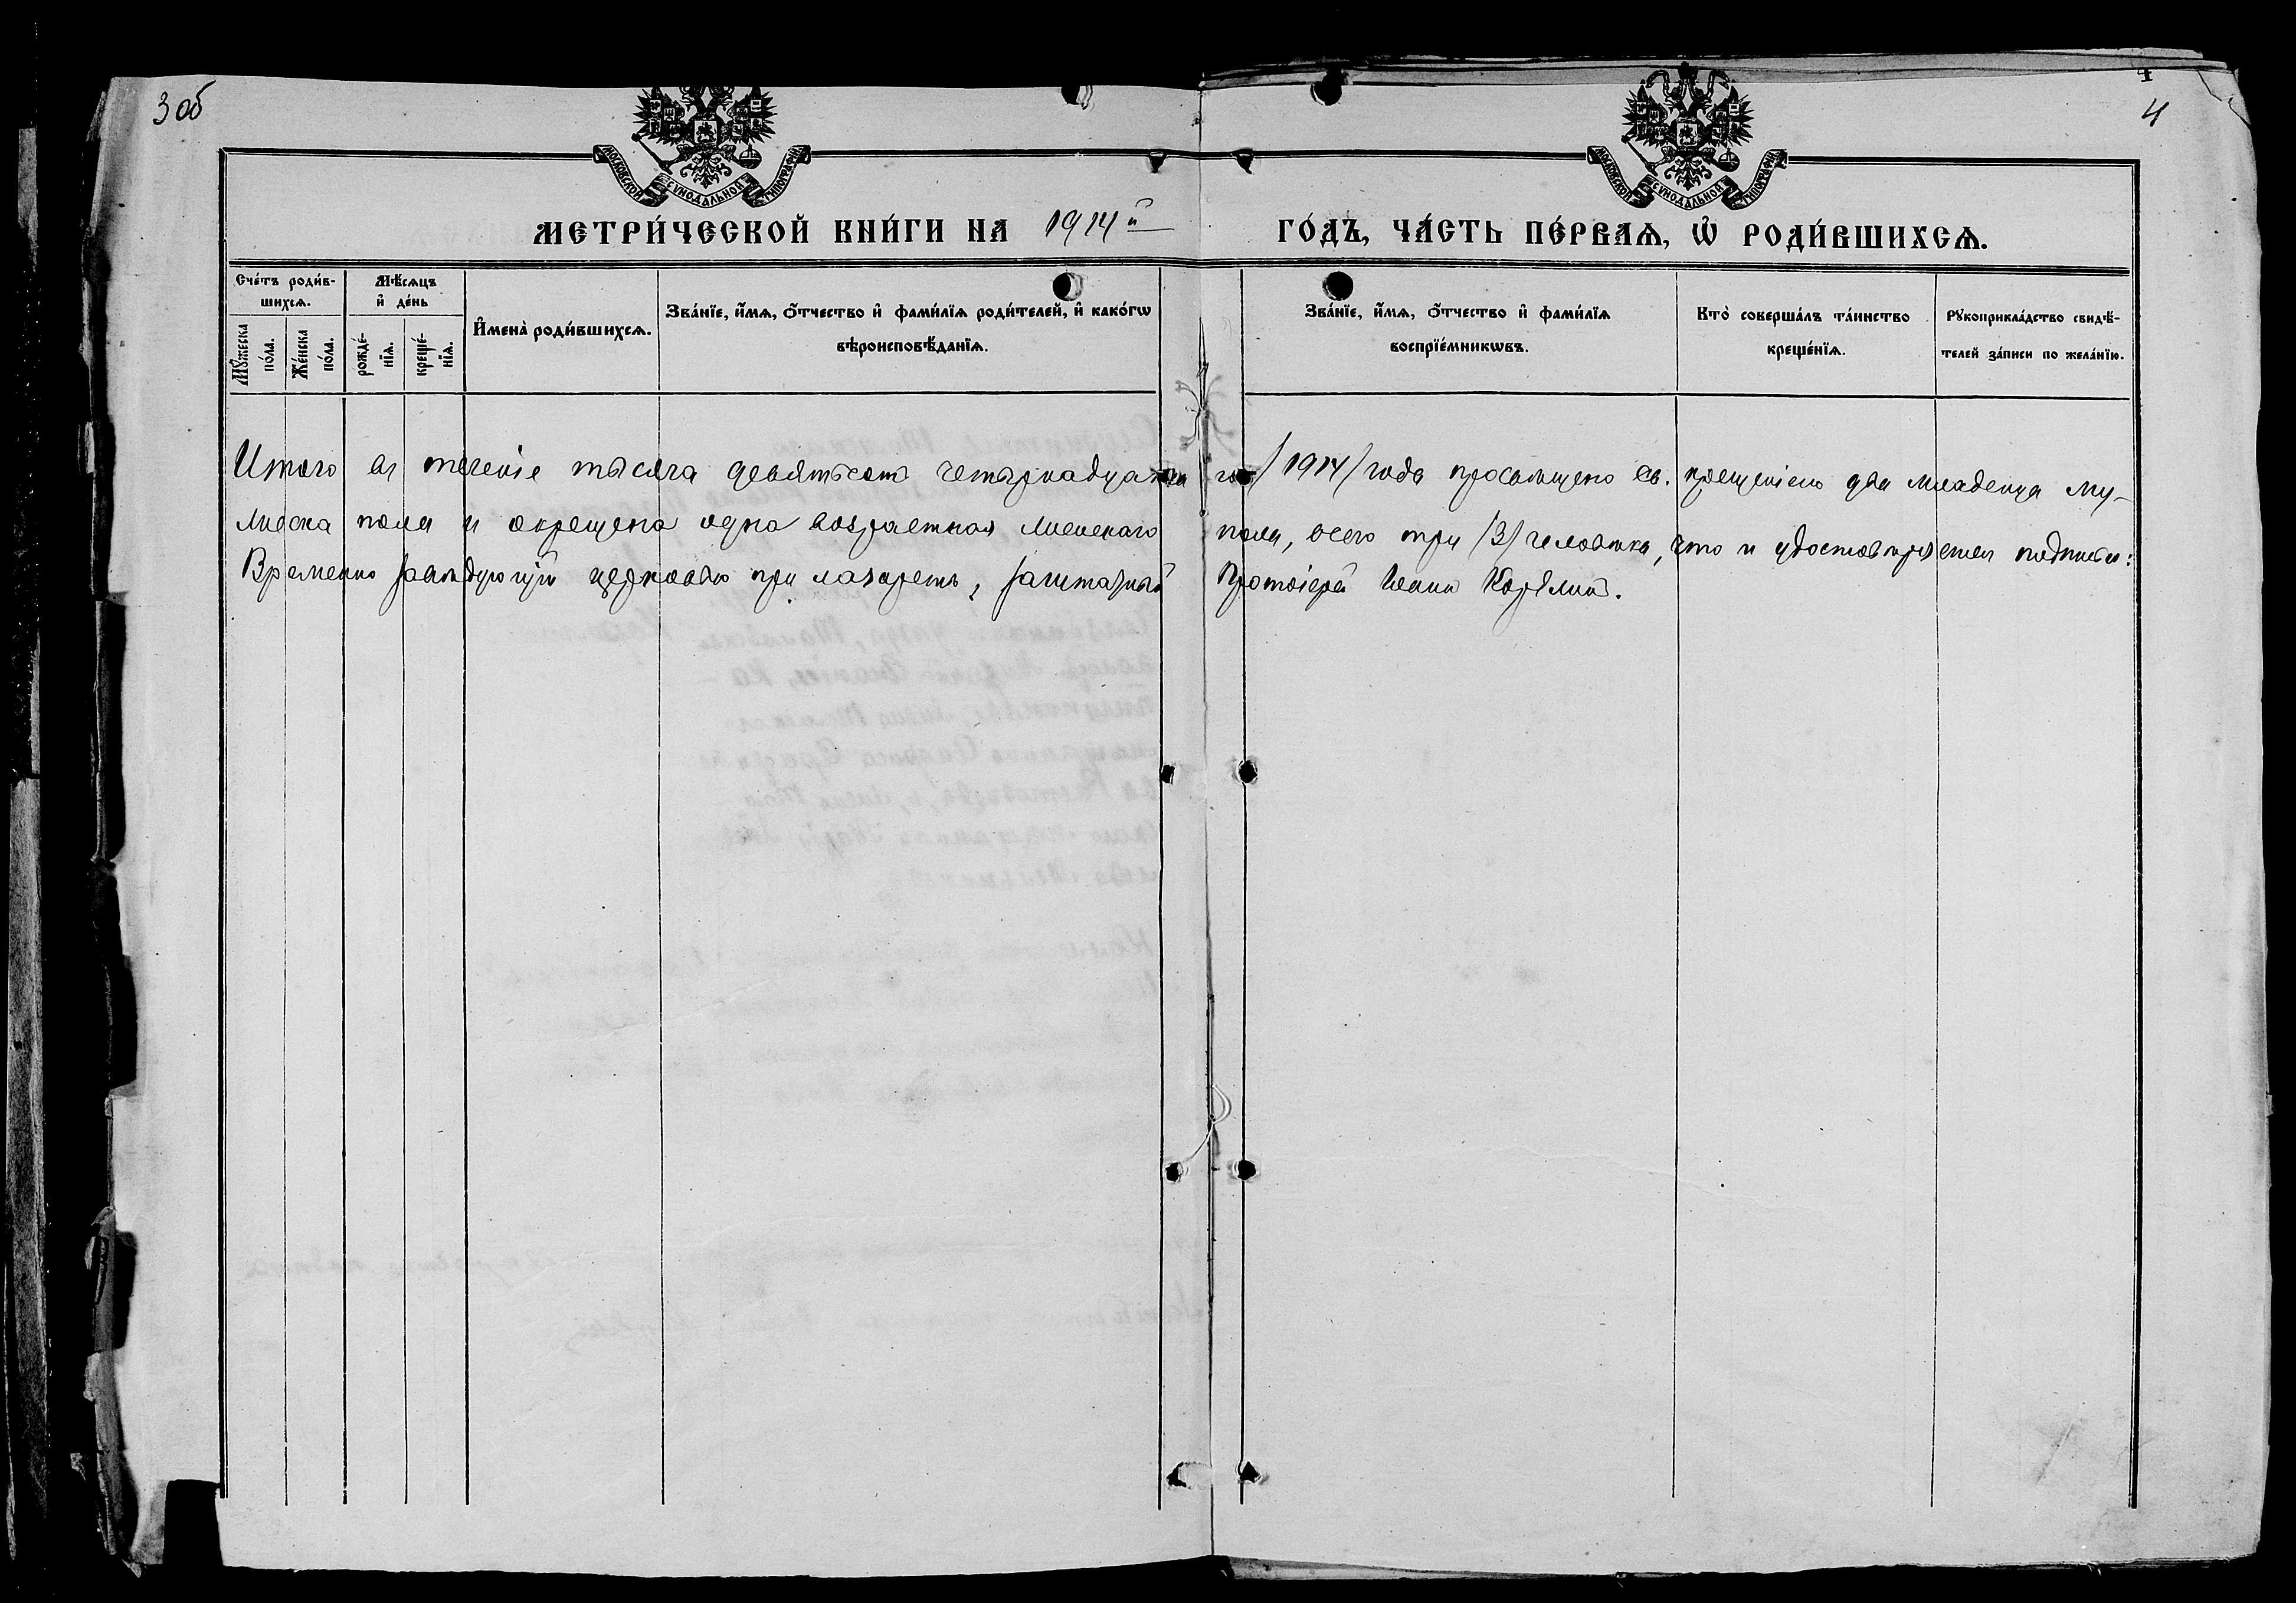 3 об
4
МОСКОВСКОЙ СУНОДАЛЬНОЙ ТИПОГРАФІИ
МОСКОВСКОЙ СУНОДАЛЬНОЙ ТИПОГРАФІИ
МЕТРИ́ЧЕСКОЙ КНИ́ГИ НА 1914й ГО́ДЪ, ЧА́СТЬ ПЕ́РВАѦ, Ѽ РОДИ́ВШИХСѦ.
Сче́тъ роди́в-
шихсѧ.
Мꙋ́жеска
по́ла.
Же́нска
по́ла.
Мѣ́сѧцъ
и҆ де́нь
рожде́-
нїѧ.
креще́-
нїѧ.
И҆мена̀ роди́вшихсѧ.
Зва́нїе, и҆́мѧ, ѻ҆́тчество и҆ фами́лїѧ роди́телей, и҆ како́гѡ
вѣроисповѣ́данїѧ.
Зва́нїе, и҆́мѧ, ѻ҆́тчество и҆ фами́лїѧ
воспрїе́мникѡвъ.
Кто̀ соверша́лъ та́инство
креще́нїѧ.
Рꙋкоприкла́дство свидѣ́-
телей за́писи по жела́нїю.
Итого въ теченіе тысяча девятьсотъ четырнадцатаго /1914/ года просвѣщено св. крещеніемъ два младенца му-
жеска пола и окрещена одна возрастная женскаго пола, всего три /3/ человѣка, что и удостовѣряетъ подписью:
Временно завѣдующій церковью при лазаретѣ, заштатный Протоіерей Іоаннъ